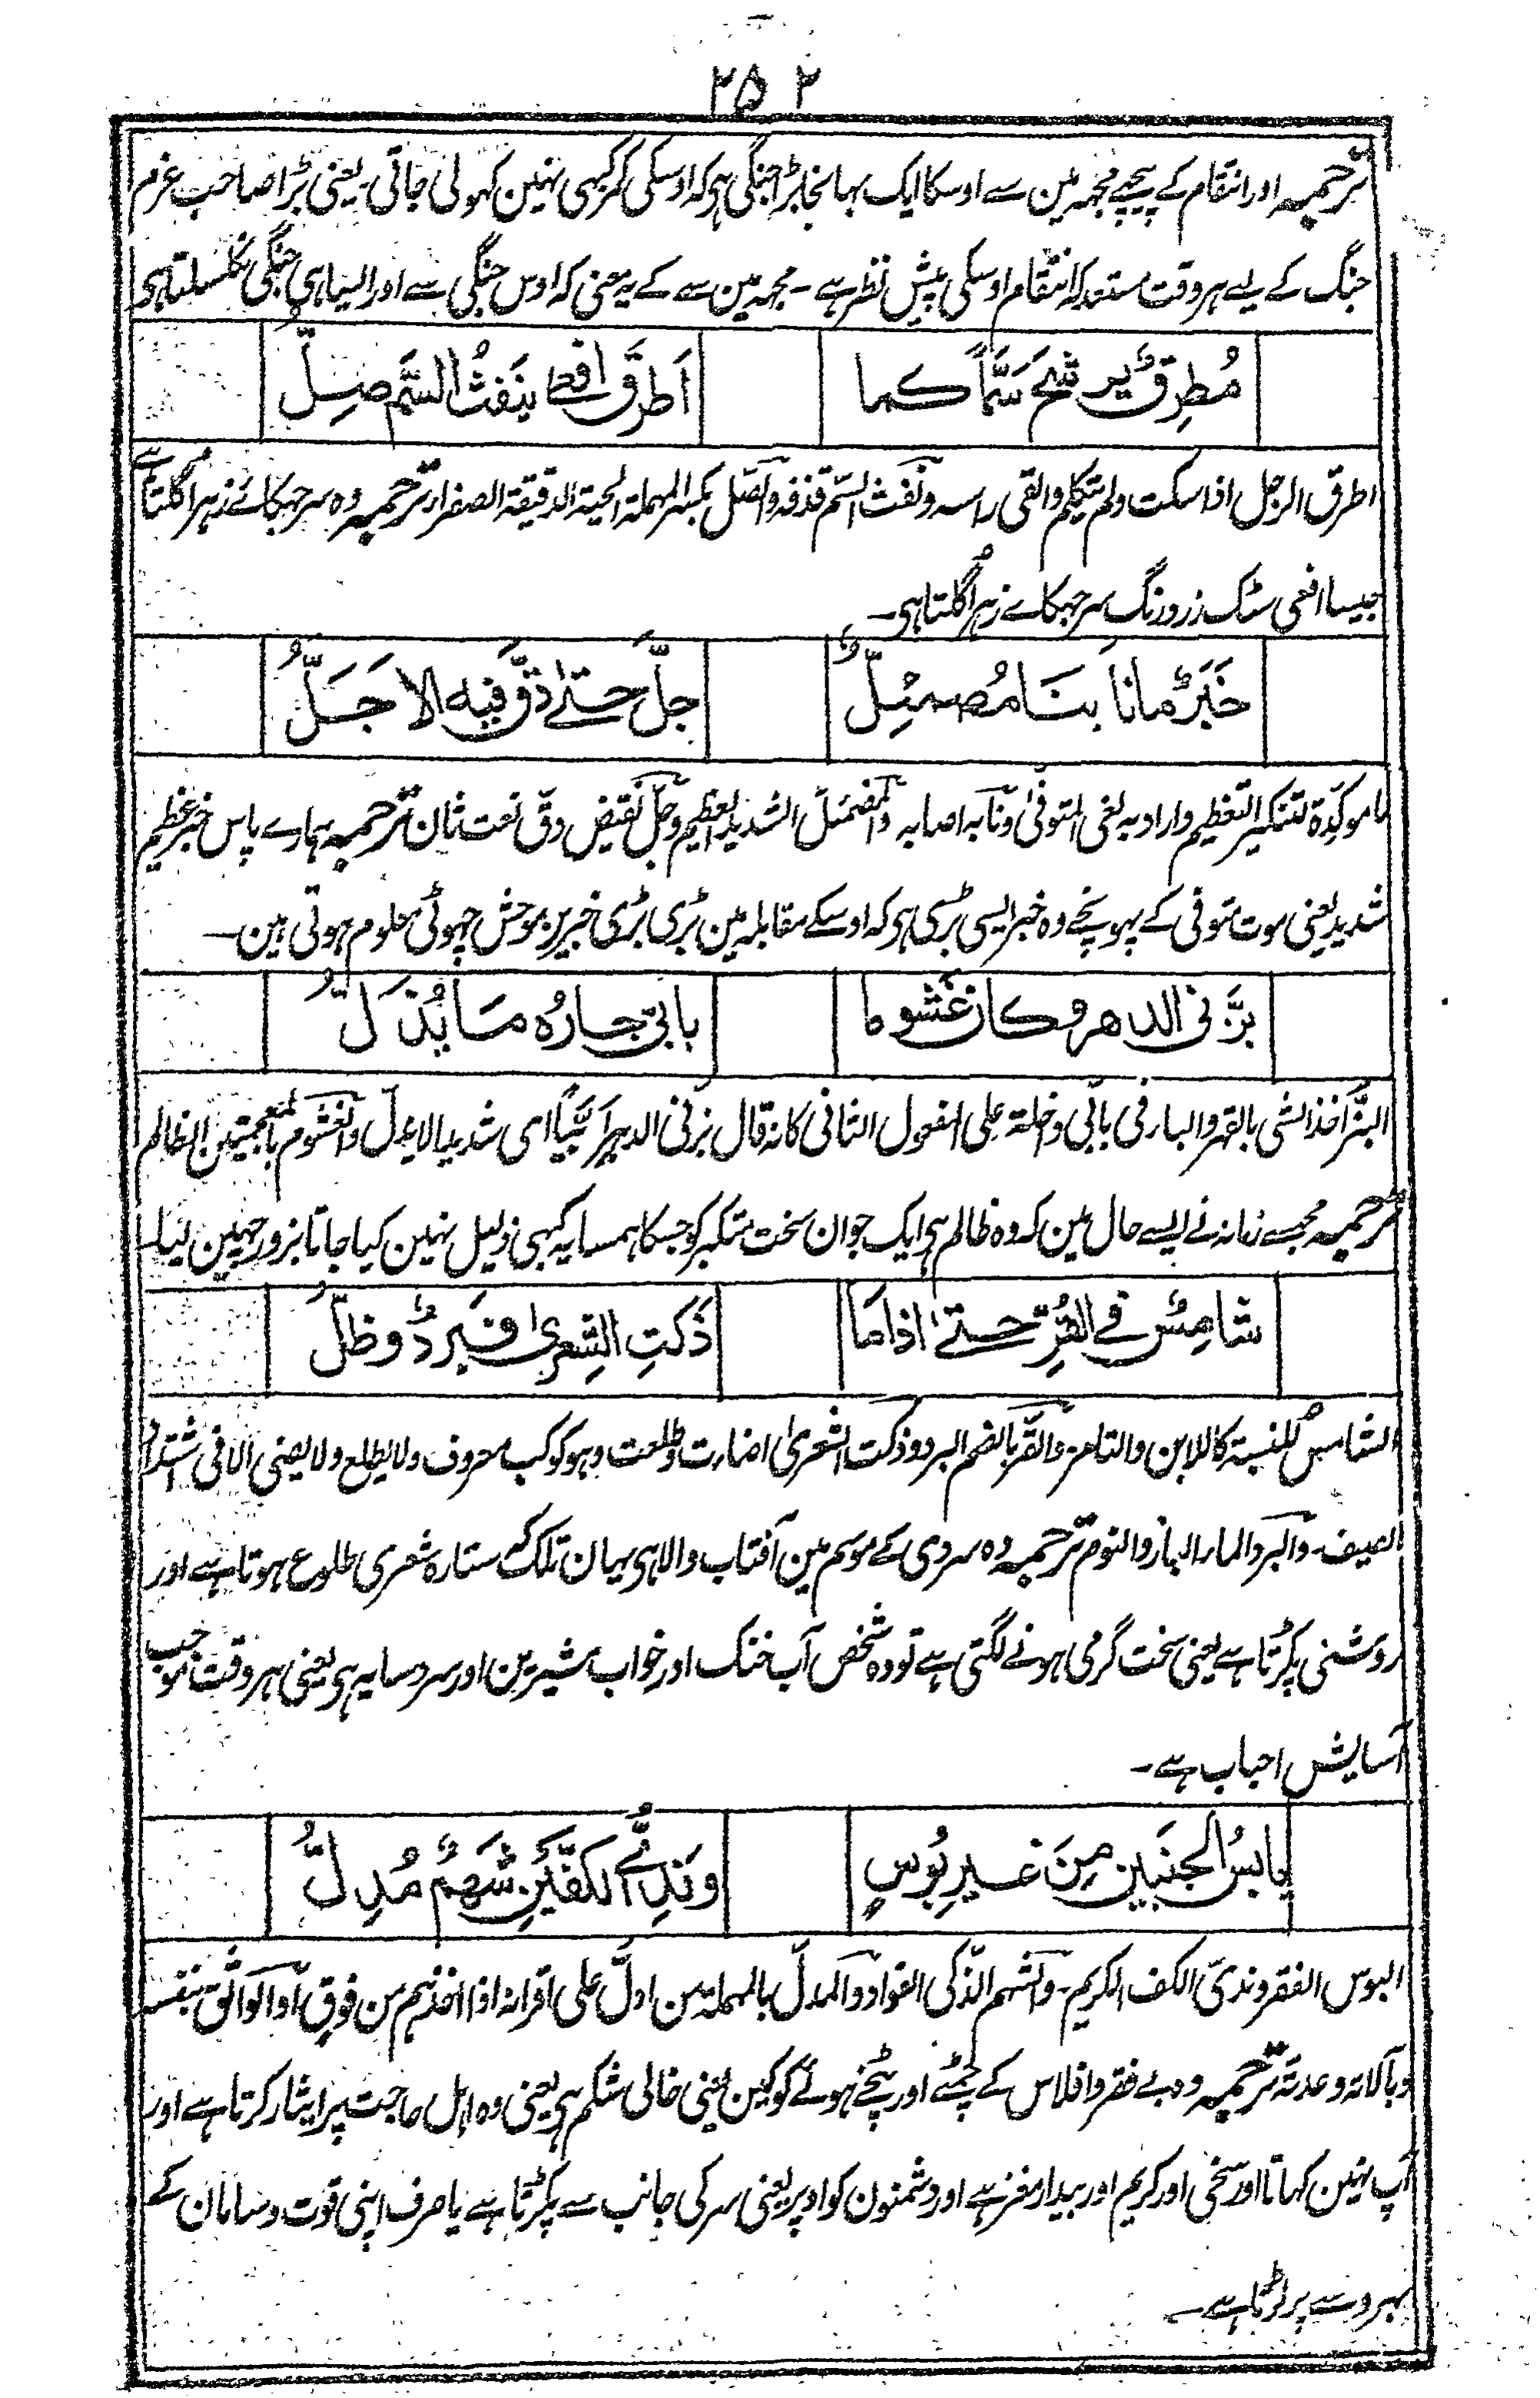 ۲۵۲
ترجمہ اور انتقام کے پیچھے مجہہ مین سے اوسکا ایک بہانجا بڑا جنگی ہی کہ اوسکی کمر کبہی نہین کہولی جاتی ۔ یعنی بڑا صاحب عزم
جنگ کے لیے ہر وقت مستعد کہ انتقام اوسکی پیش نظر ہے ۔ مجہہ مین سے کے یہ معنی کہ اوس جنگی سے اور ایسا ہی جنگی نکلسکتا ہی
مُطرِقٌ يرشحُ سَمًّا كما اَطرَقَ افعٰى ينفثُ السَّم صِلُّ
اطرق الرجل اذا سکت ولم یتکلم والقی راسہ ونفث السّم قذفہ والصّل بکسر المہملۃ الحیۃ الدقیقۃ الصفراء ترجمہ وہ سر جہکائے زہر اُگلتا ہے
جیسا افعی سٹک زرد رنگ سر جہکاے زہر اُگلتا ہی ۔
خَبَرٌ مانا بنَا مُصمئِلٌّ جلَّ حتى دقَّ فيه الاجَلُّ
ما موکّدۃ لتنکیر التعظیم واراد بہ لغی المتوفّی ونابہ اصابہ والمصمئل الشدید العظیم وجلّ نقیض دقّ نعت ثان ترجمہ ہمارے پاس خبر عظیم
شدید یعنی موت متوفی کے پہونچے وہ خبر ایسی بڑی ہی کہ اوسکے مقابلہ مین بڑی بڑی خبرین موحش چہوٹی معلوم ہوتی ہین ۔
بزَّنى الدهر وكان غشوما بابىّ جارُه مَا يُذَلُّ
البزّ اخذ الشی بالقہر والباء فی بابّی وخلۃ علی المفعول الثانی کانہ قال بزّنی الدہر ابیّاً ای شدید الا یذل والغشوم بالمعجمتین الظالم
ترجمہ مجہسے زمانہ نے ایسے حال مین کہ وہ ظالم ہی ایک جوان سخت متکبر کو جسکا ہمسایہ کبہی ذلیل نہین کیا جاتا بزور چہین لیا ۔
شامسٌ فى القُرّ حتى اذا مَا ذَكتِ الشِعرى فبردٌ وظلُّ
الشامس للنسبۃ کاللابن والتامر والقرّ بالضم البرد وذکت الشعریٰ اضاءت وطلعت وہو کوکب معروف ولا یطلع ولا یضئی الا فی اشتداد
الصیف ۔ والبرد الماء البارد والنوم ترجمہ وہ سردی کے موسم مین آفتاب والا ہی یہان تلک کہ ستارہ شعری طلوع ہوتا ہے اور
روشنی پکڑتا ہے یعنی سخت گرمی ہونے لگتی ہے تو وہ شخص آب خنک اور خواب شیرین اور سرد سایہ ہی یعنی ہر وقت موجب
آسایش احباب ہے ۔
يابسُ الجنبين مِن غيرِ بُوسٍ ونَدِىُّ الكفَّينِ شَهمٌ مُدِلُّ
البوس الفقر وندیّ الکف الکریم ۔ والشہم الذّکی الفواد والمدلّ بالمہملۃ من ادلّ علی اقرانہ اذا اخذہم من فوق اوالواثق بنفسہ
وبآلاتہ وعدتہ ترجمہ وہ بے فقر وافلاس کے چمٹے اور پچے ہوئے کوکہین یعنی خالی شکم ہی یعنی وہ اہل حاجت پر ایثار کرتا ہے اور
آپ نہین کہاتا اور سخی اور کریم اور بیدار مغز ہے اور دشمنون کو اوپر یعنی سر کی جانب سے پکڑتا ہے یا صرف اپنی قوت وسامان کے
بہروسے پر لڑتا ہے ۔